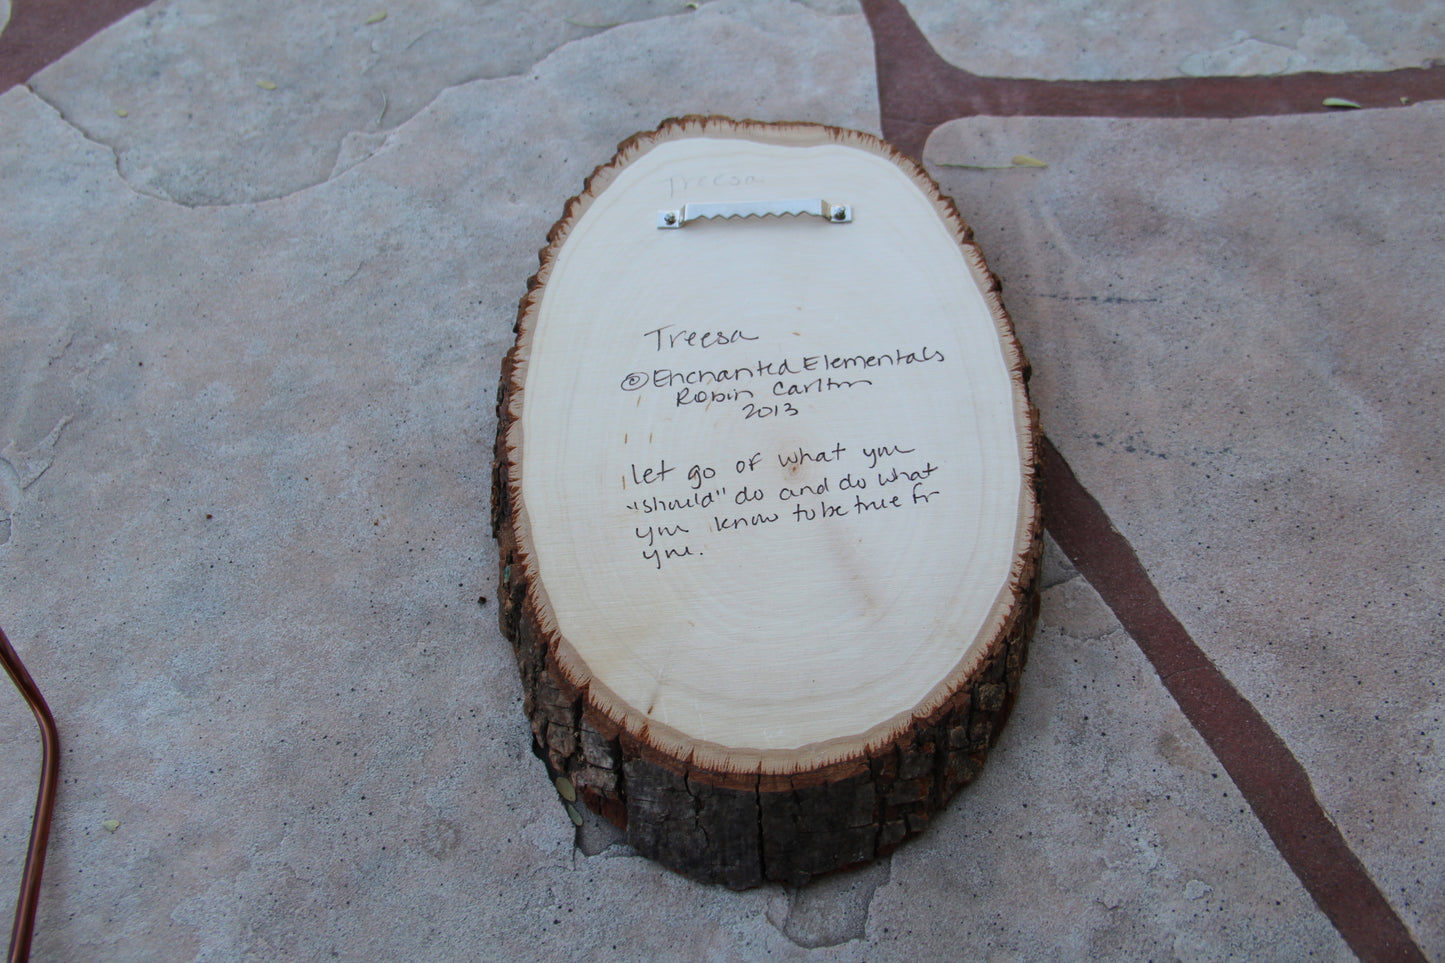 Treesa
Treesa
© Enchanted Elementals
Robin Carlton
2013
let go of what you
"should" do and do what
you know to be true for
you.